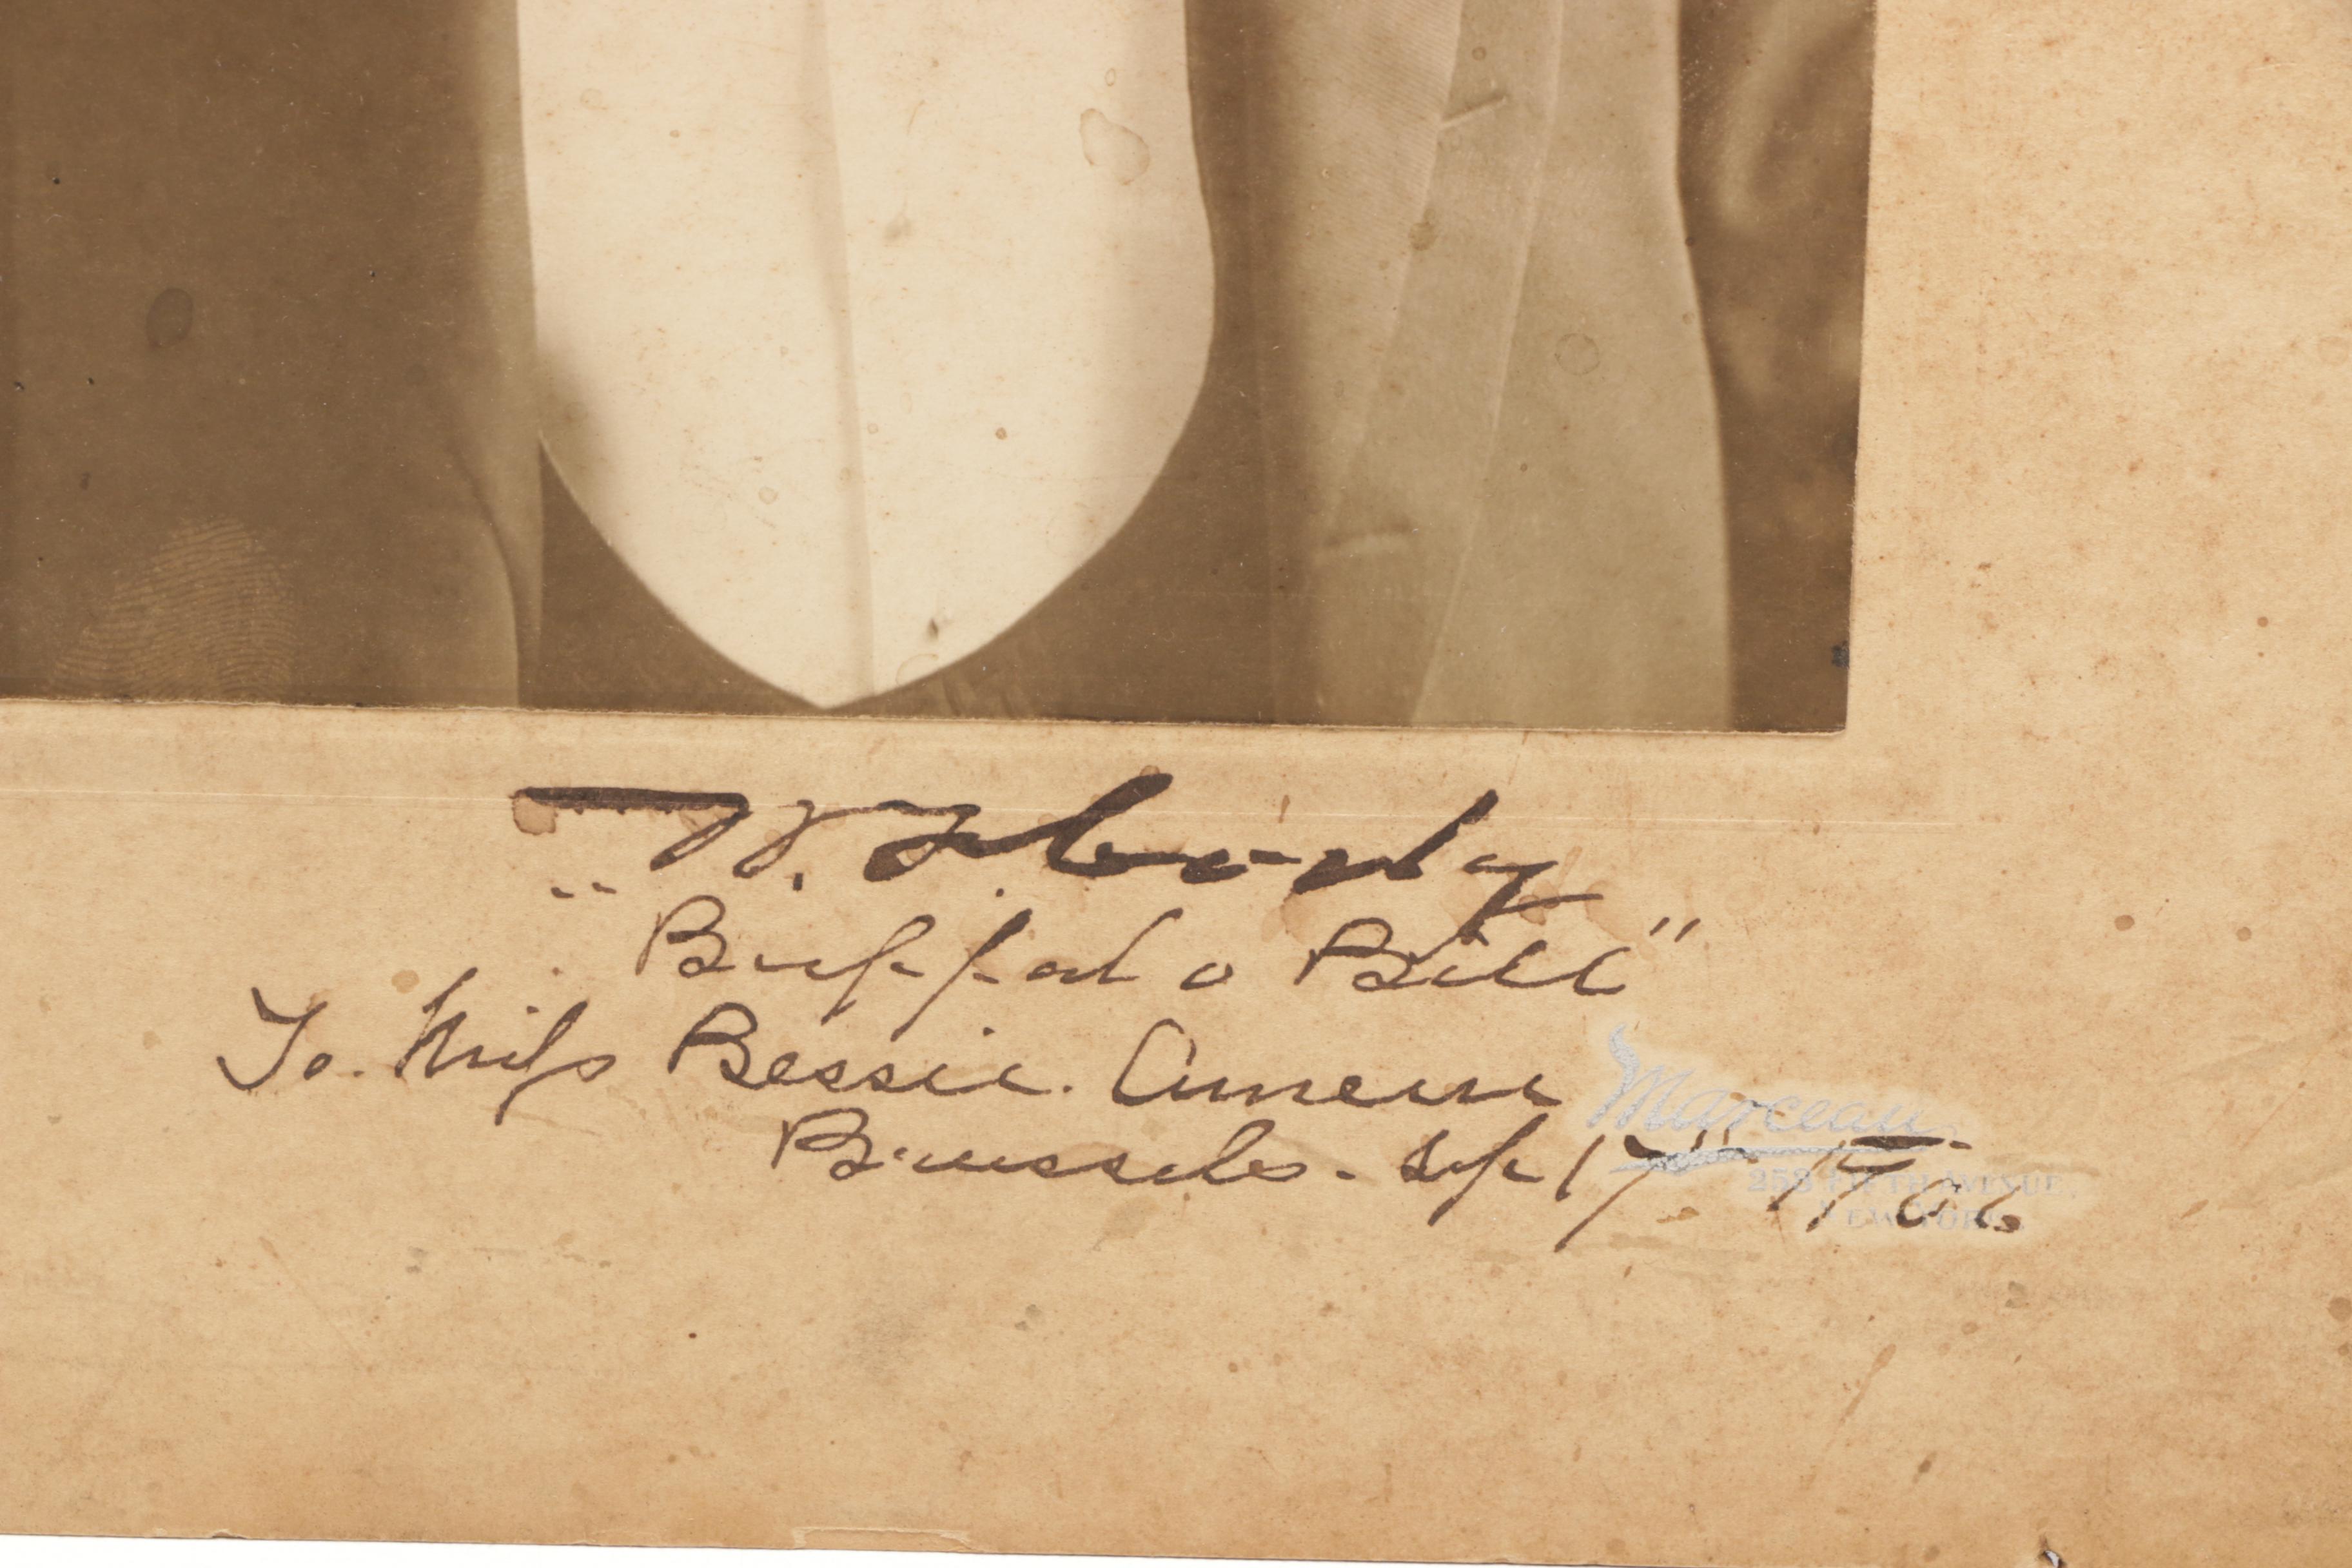 W. F. Cody
"Buffalo Bill"
To. Miss Bessie.
Brussels - Sep 17" - 1906
Marceau
258 FIFTH AVENUE,
NEW YORK